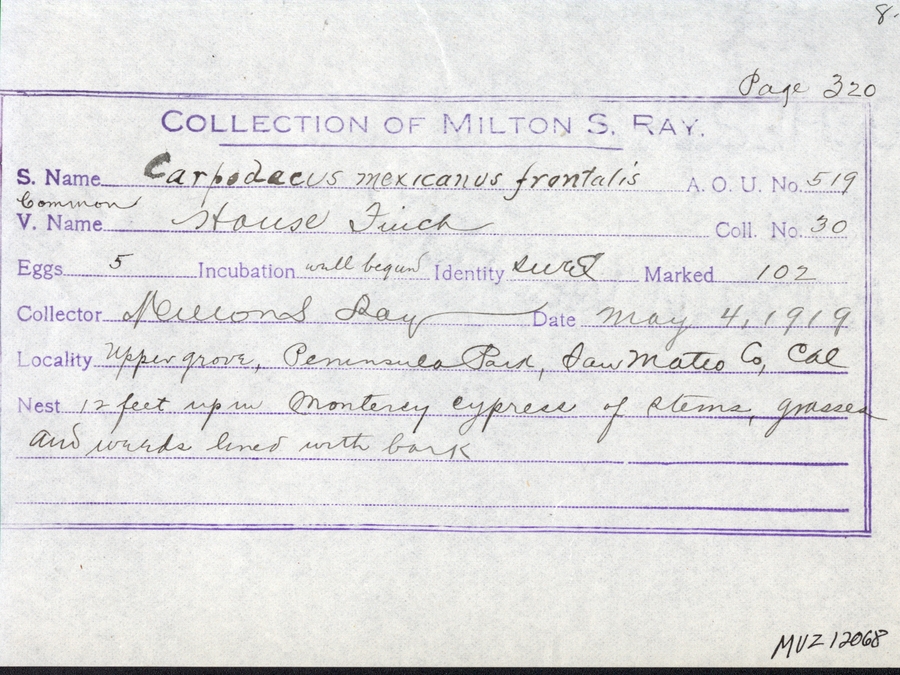 8.
Page 320
COLLECTION OF MILTON S. RAY.
S. Name Carpodacus mexicanus frontalis A. O. U. No. 519
Common
V. Name House Finch Coll. No. 30
Eggs 5 Incubation well begun Identity Marked 102
Collector Milton S Ray Date May 4, 1919
Locality Upper grove, Peninsula Park, San Mateo Co, Cal
Nest 12 feet up in Monterey cypress of stems, grasses
and weeds lined with bark
MVZ 12068